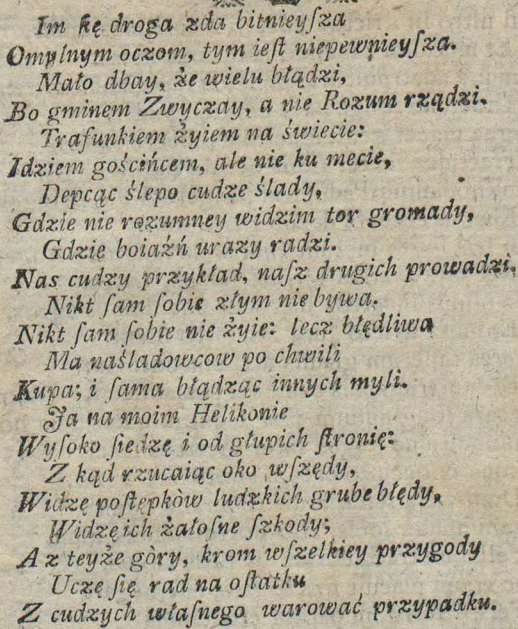 Im ſię droga zda bitnieyſza
Omylnym oczom, tym ieſt niepewnieyſza.
Mało dbay, że wielu błądzi,
Bo gminem Zwyczay, a nie Rozum rządzi.
Trafunkiem żyiem na świecie:
Idziem gościńcem, ale nie ku mecie,
Depcąc ślepo cudze ślady,
Gdzie nie rozumney widzim tor gromady,
Gdzie boiaźń urazy radzi.
Nas cudzy przykład, naſz drugich prowadzi,
Nikt ſam ſobie złym nie bywa.
Nikt ſam ſobie nie żyie: lecz błędliwa
Ma naśladowcow po chwili
Kupa; i ſama błądząc innych myli.
Ja na moim Helikonie
Wyſoko ſiedzę i od głupich ſtronię:
Z kąd rzucaiąc oko wſzędy,
Widzę poſtępkòw ludzkich grube błędy,
Widzę ich żałoſne ſzkody;
A z teyże gòry, krom wſzelkiey przygody
Uczę ſię rad na oſtatku
Z cudzych właſnego warować przypadku.